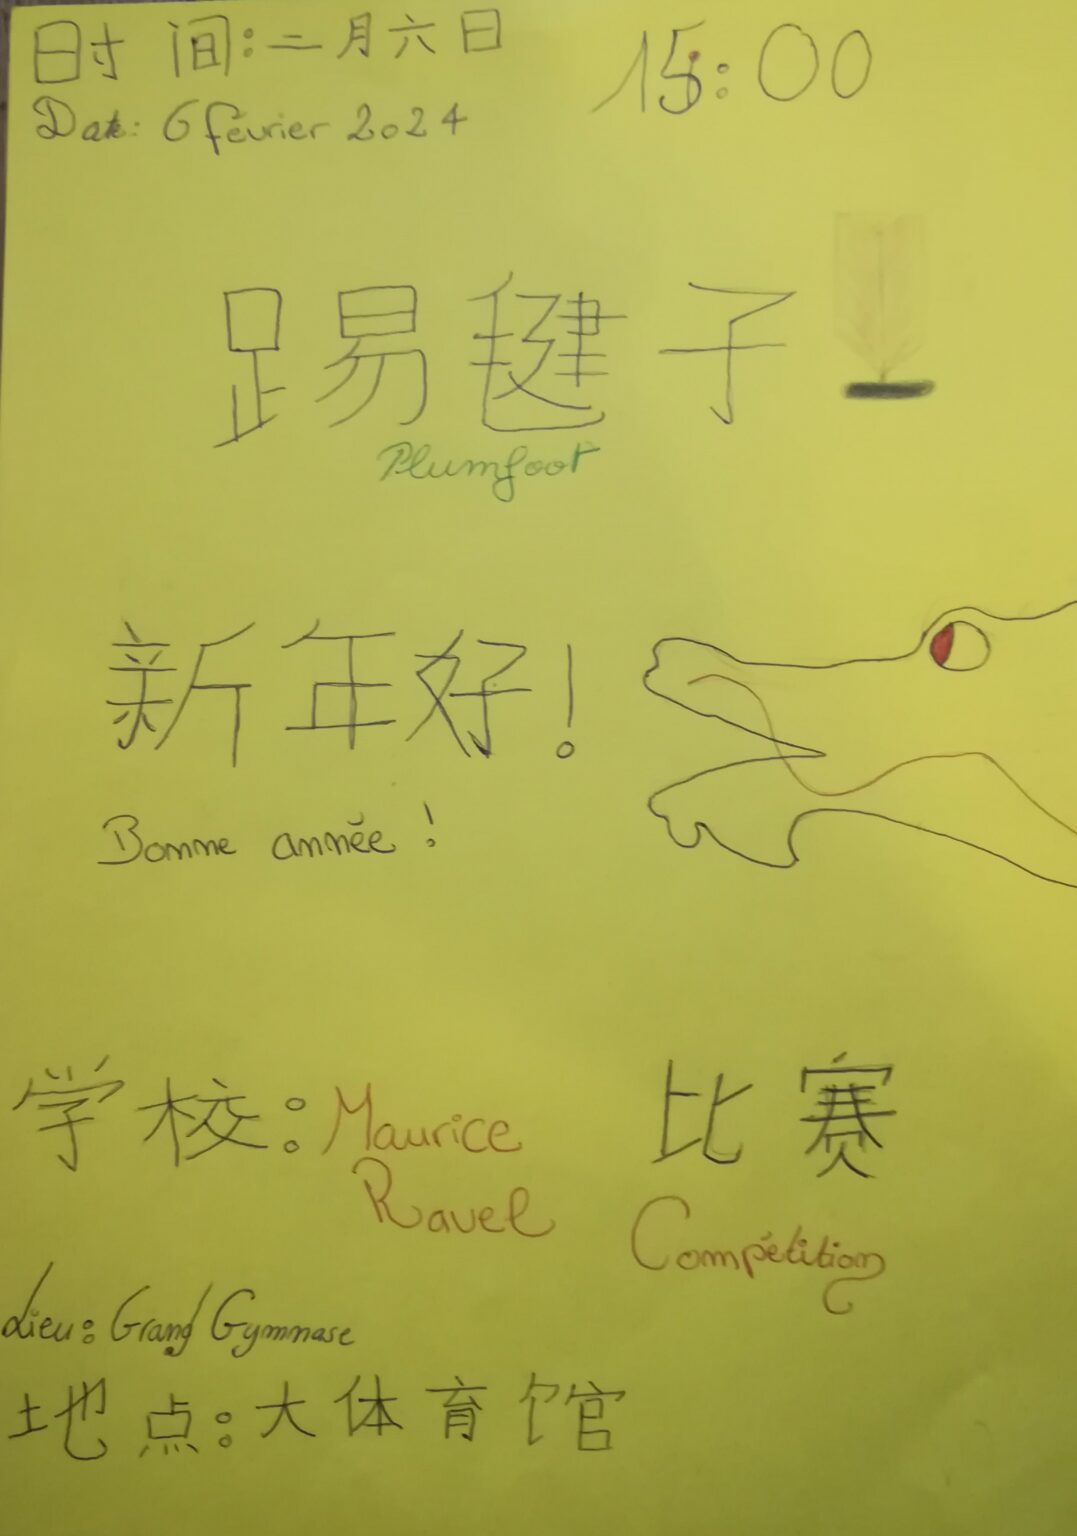 时间:二月六日 15:00
Date: 6 février 2024
踢毽子
Plumfoot
新年好!
Bonne année !
学校: Maurice Ravel
比赛
Compétition
Lieu: Grand Gymnase
地点:大体育馆